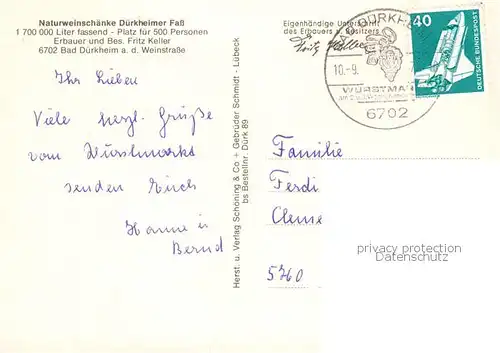 Naturweinschänke Dürkheimer Faß
1 700 000 Liter fassend - Platz für 500 Personen
Erbauer und Bes. Fritz Keller
6702 Bad Dürkheim a. d. Weinstraße
Ihr Lieben
Viele herzl. Grüße
vom Wurstmarkt
senden Euch
Hanne u
Bernd
Herst. u. Verlag Schöning & Co + Gebrüder Schmidt - Lübeck
bs Bestellnr. Dürk 89
Eigenhändige Unterschrift
des Erbauers u. Besitzers
Fritz Keller
BAD DÜRKHEIM
10.-9.
WURSTMARKT
6702
40
DEUTSCHE BUNDESPOST
Familie
Ferdi
Cleme
5760
privacy protection
Datenschutz